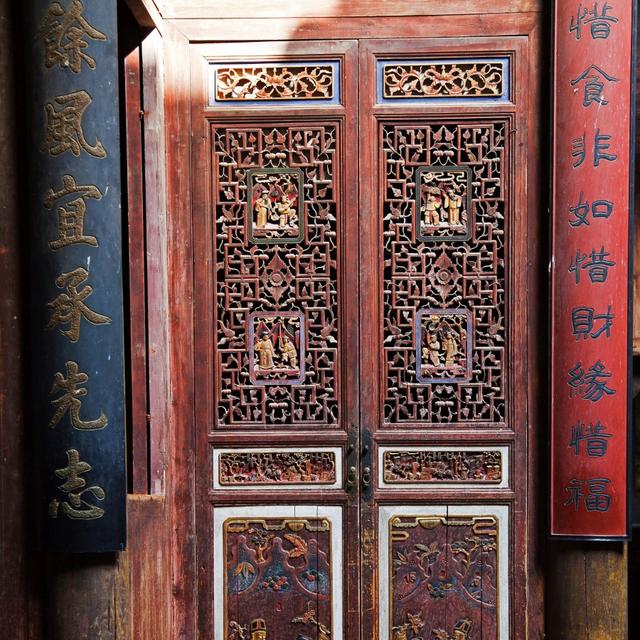 惜食非如惜財緣惜福
餘風宜承先志